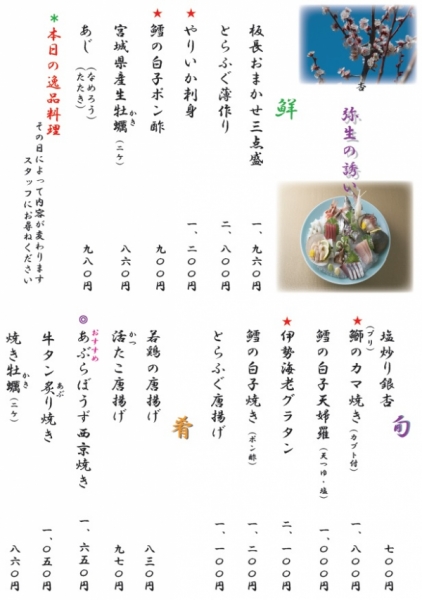 弥生の誘い
鮮
板長おまかせ三点盛 一、九六〇円
とらふぐ薄作り 二、八〇〇円
★やりいか刺身 一、二〇〇円
★鱈の白子ポン酢 九〇〇円
宮城県産生牡蠣(二ケ) 八六〇円
かき
あじ(なめろう)(たたき) 九八〇円
＊本日の逸品料理
その日によって内容が変わります
スタッフにお尋ねください
旬
塩炒り銀杏 七〇〇円
★鰤のカマ焼き(カブト付) 一、八〇〇円
(ブリ)
鱈の白子天婦羅(天つゆ・塩) 一、〇〇〇円
★伊勢海老グラタン 二、一〇〇円
鱈の白子焼き(ポン酢) 一、二〇〇円
とらふぐ唐揚げ 一、一〇〇円
肴
若鶏の唐揚げ 八三〇円
活たこ唐揚げ 九七〇円
かつ
◎あぶらぼうず西京焼き 一、六五〇円
おすすめ
牛タン炙り焼き 一、〇五〇円
あぶ
焼き牡蠣(二ケ) 八六〇円
かき